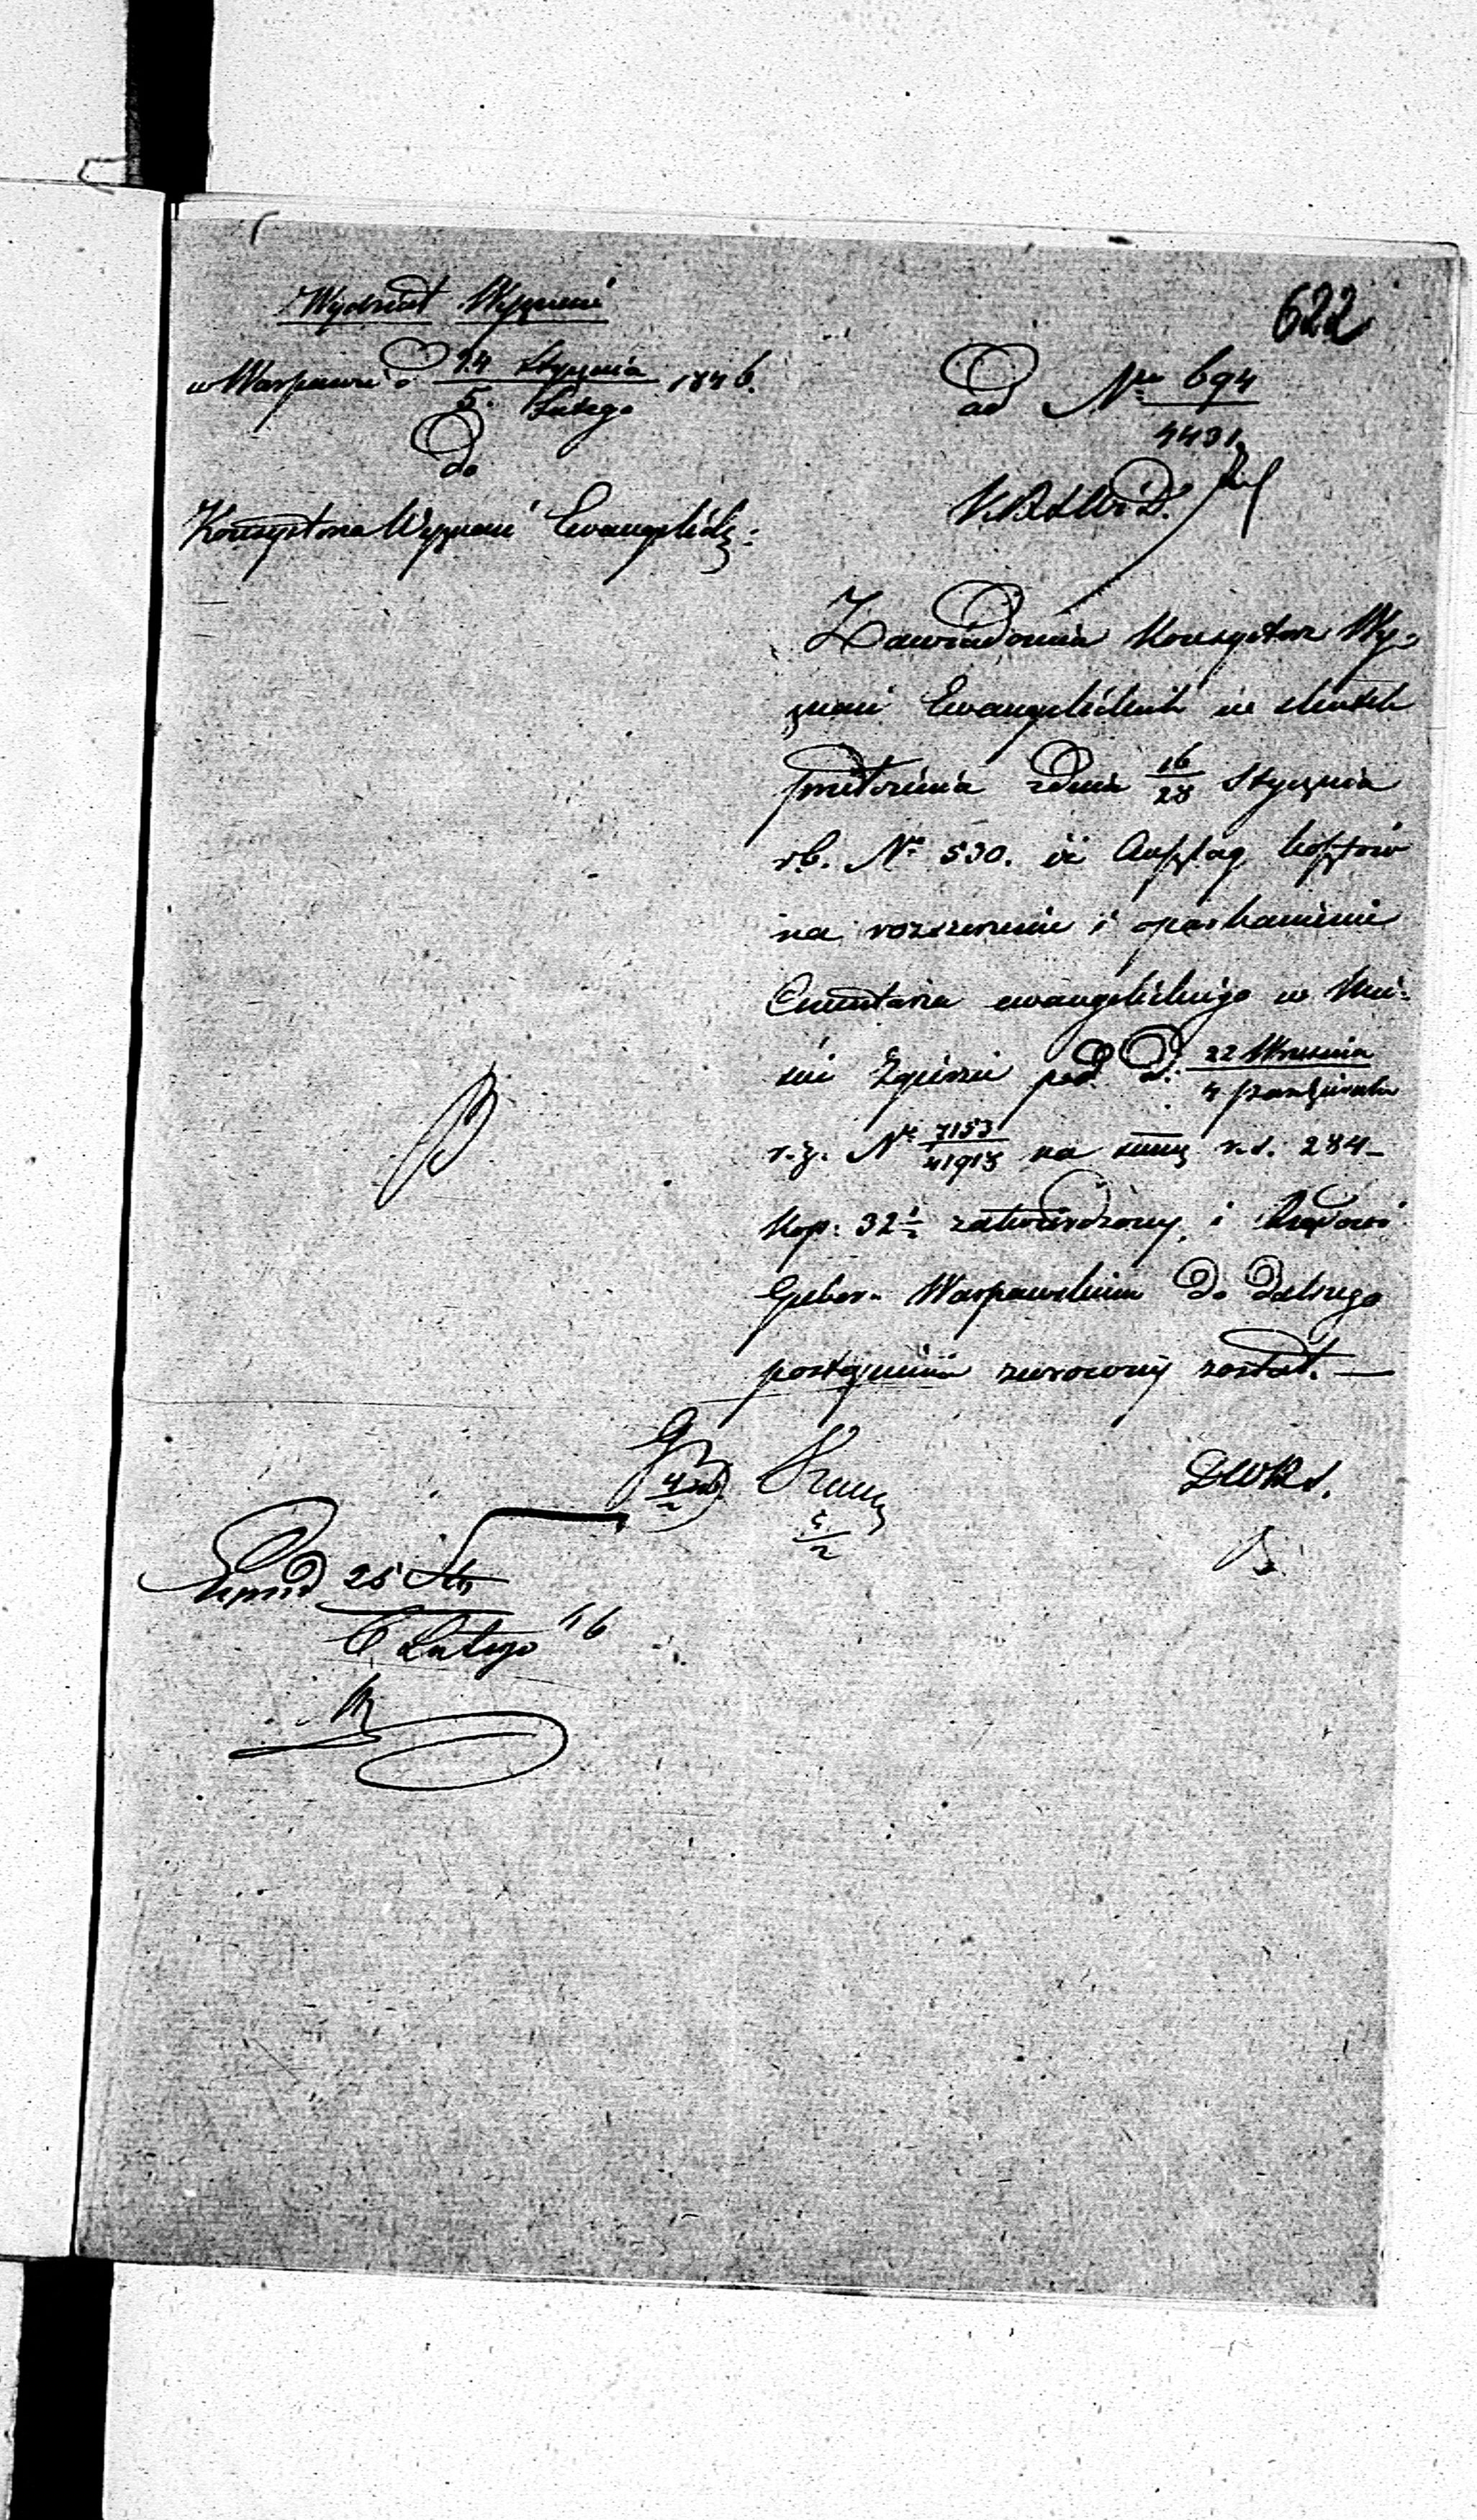 622
Wydział Wyznań
w Warszawie d 24 Stycznia / 5. Lutego 1846.
Do
Konsystorza Wyznań Ewangelick:
ad Nr 694 / 4431
K.R.S.W.i.D.
Zawiadamia Konsystorz Wy-
znań Ewangelickich w skutek
przedstawienia z dnia 16/28 Stycznia
r.b. Nr 530. iż Anszlag kosztów
na rozszerzenie i oparkanienie
Cmentarza ewangelickiego w Mie-
ście Zgierzu pod d. 22 Września / 4 Października
r.z. Nr 7153/41918 na summę r.s. 284
kop: 32½ zatwierdzony, i Rządowi
Guber. Warszawskiemu do dalszego
postąpienia zwrócony został. —
D.W.R.S.
4/2
5/2
25 St
6 Lutego 46